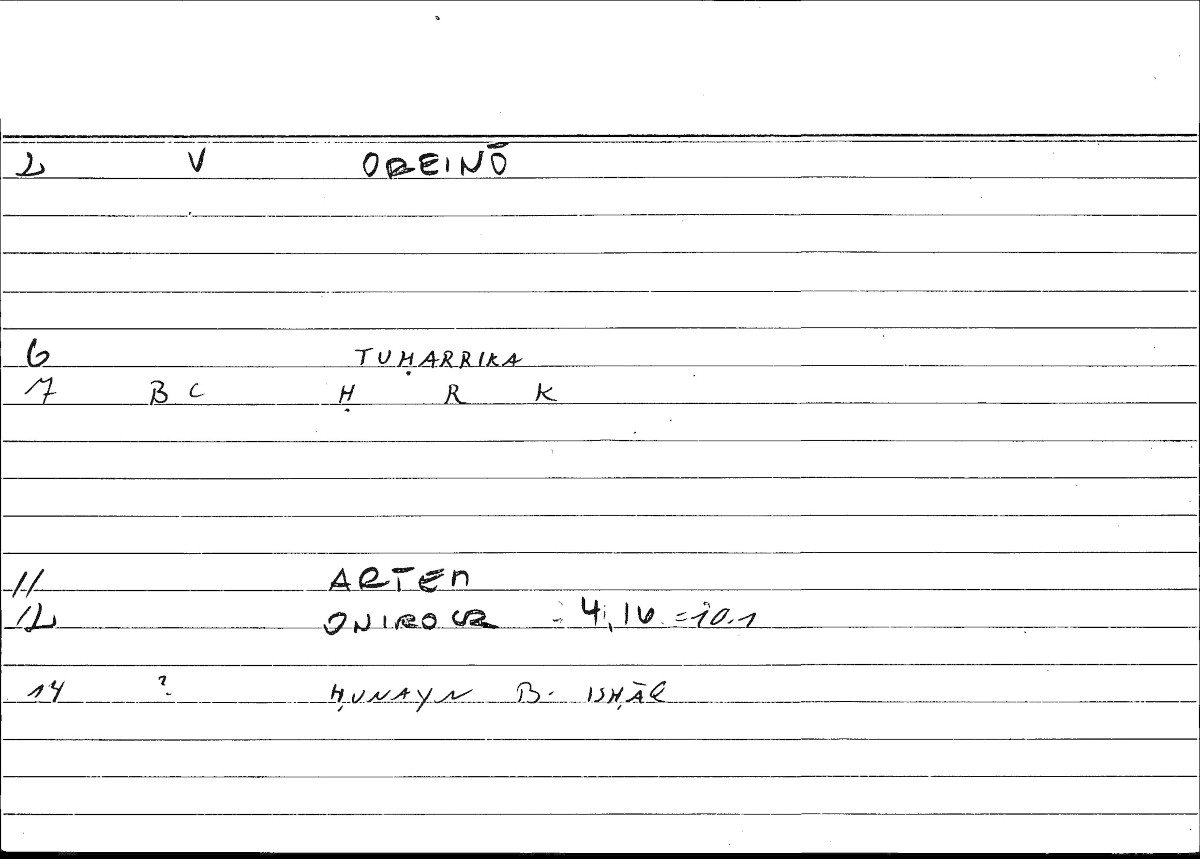 2 V OREINŌ
6 TUḤARRIKA
7 B C Ḥ R K
11 ARTEM
12 ONIROCR 4,16 = 10.1
14 ? ḤUNAYN B. ISḤĀQ